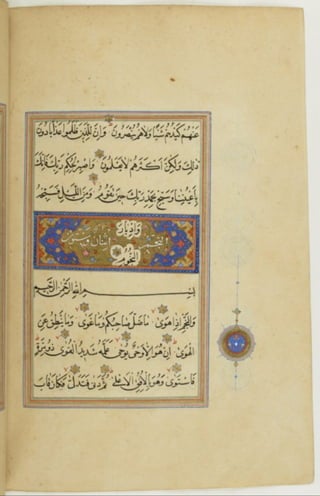 عَنْهُمْ كَيْدُهُمْ شَيْئًا وَلَا هُمْ يُنْصَرُونَ وَإِنَّ لِلَّذِينَ ظَلَمُوا عَذَابًا دُونَ
ذَٰلِكَ وَلَٰكِنَّ أَكْثَرَهُمْ لَا يَعْلَمُونَ وَاصْبِرْ لِحُكْمِ رَبِّكَ فَإِنَّكَ
بِأَعْيُنِنَا وَسَبِّحْ بِحَمْدِ رَبِّكَ حِينَ تَقُومُ وَمِنَ اللَّيْلِ فَسَبِّحْهُ
وَإِدْبَارَ
النجم اثنان وستون
النُّجُومِ
بِسْمِ اللَّهِ الرَّحْمَٰنِ الرَّحِيمِ
وَالنَّجْمِ إِذَا هَوَىٰ مَا ضَلَّ صَاحِبُكُمْ وَمَا غَوَىٰ وَمَا يَنْطِقُ عَنِ
الْهَوَىٰ إِنْ هُوَ إِلَّا وَحْيٌ يُوحَىٰ عَلَّمَهُ شَدِيدُ الْقُوَىٰ ذُو مِرَّةٍ
فَاسْتَوَىٰ وَهُوَ بِالْأُفُقِ الْأَعْلَىٰ ثُمَّ دَنَىٰ فَتَدَلَّىٰ فَكَانَ قَابَ